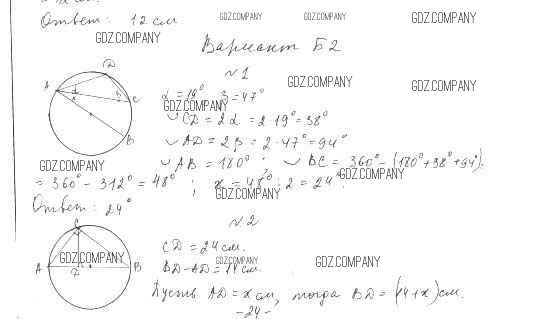 Ответ: 12 см
GDZ.COMPANY GDZ.COMPANY GDZ.COMPANY
GDZ.COMPANY
Вариант Б2
№1
GDZ.COMPANY GDZ.COMPANY
D
A
C
B
α = 19° β = 47°
GDZ.COMPANY
◡CD = 2α = 2·19° = 38°
◡AD = 2β = 2·47° = 94°
GDZ.COMPANY
◡AB = 180° ; ◡BC = 360° - (180° + 38° + 94°)
GDZ.COMPANY
= 360° - 312° = 48° ; x = 48° : 2 = 24°.
GDZ.COMPANY
Ответ: 24°
№2
C
A
D
B
CD = 24 см.
GDZ.COMPANY GDZ.COMPANY GDZ.COMPANY
BD - AD = 14 см.
Пусть AD = x см, тогда BD = (14 + x) см.
- 24 -